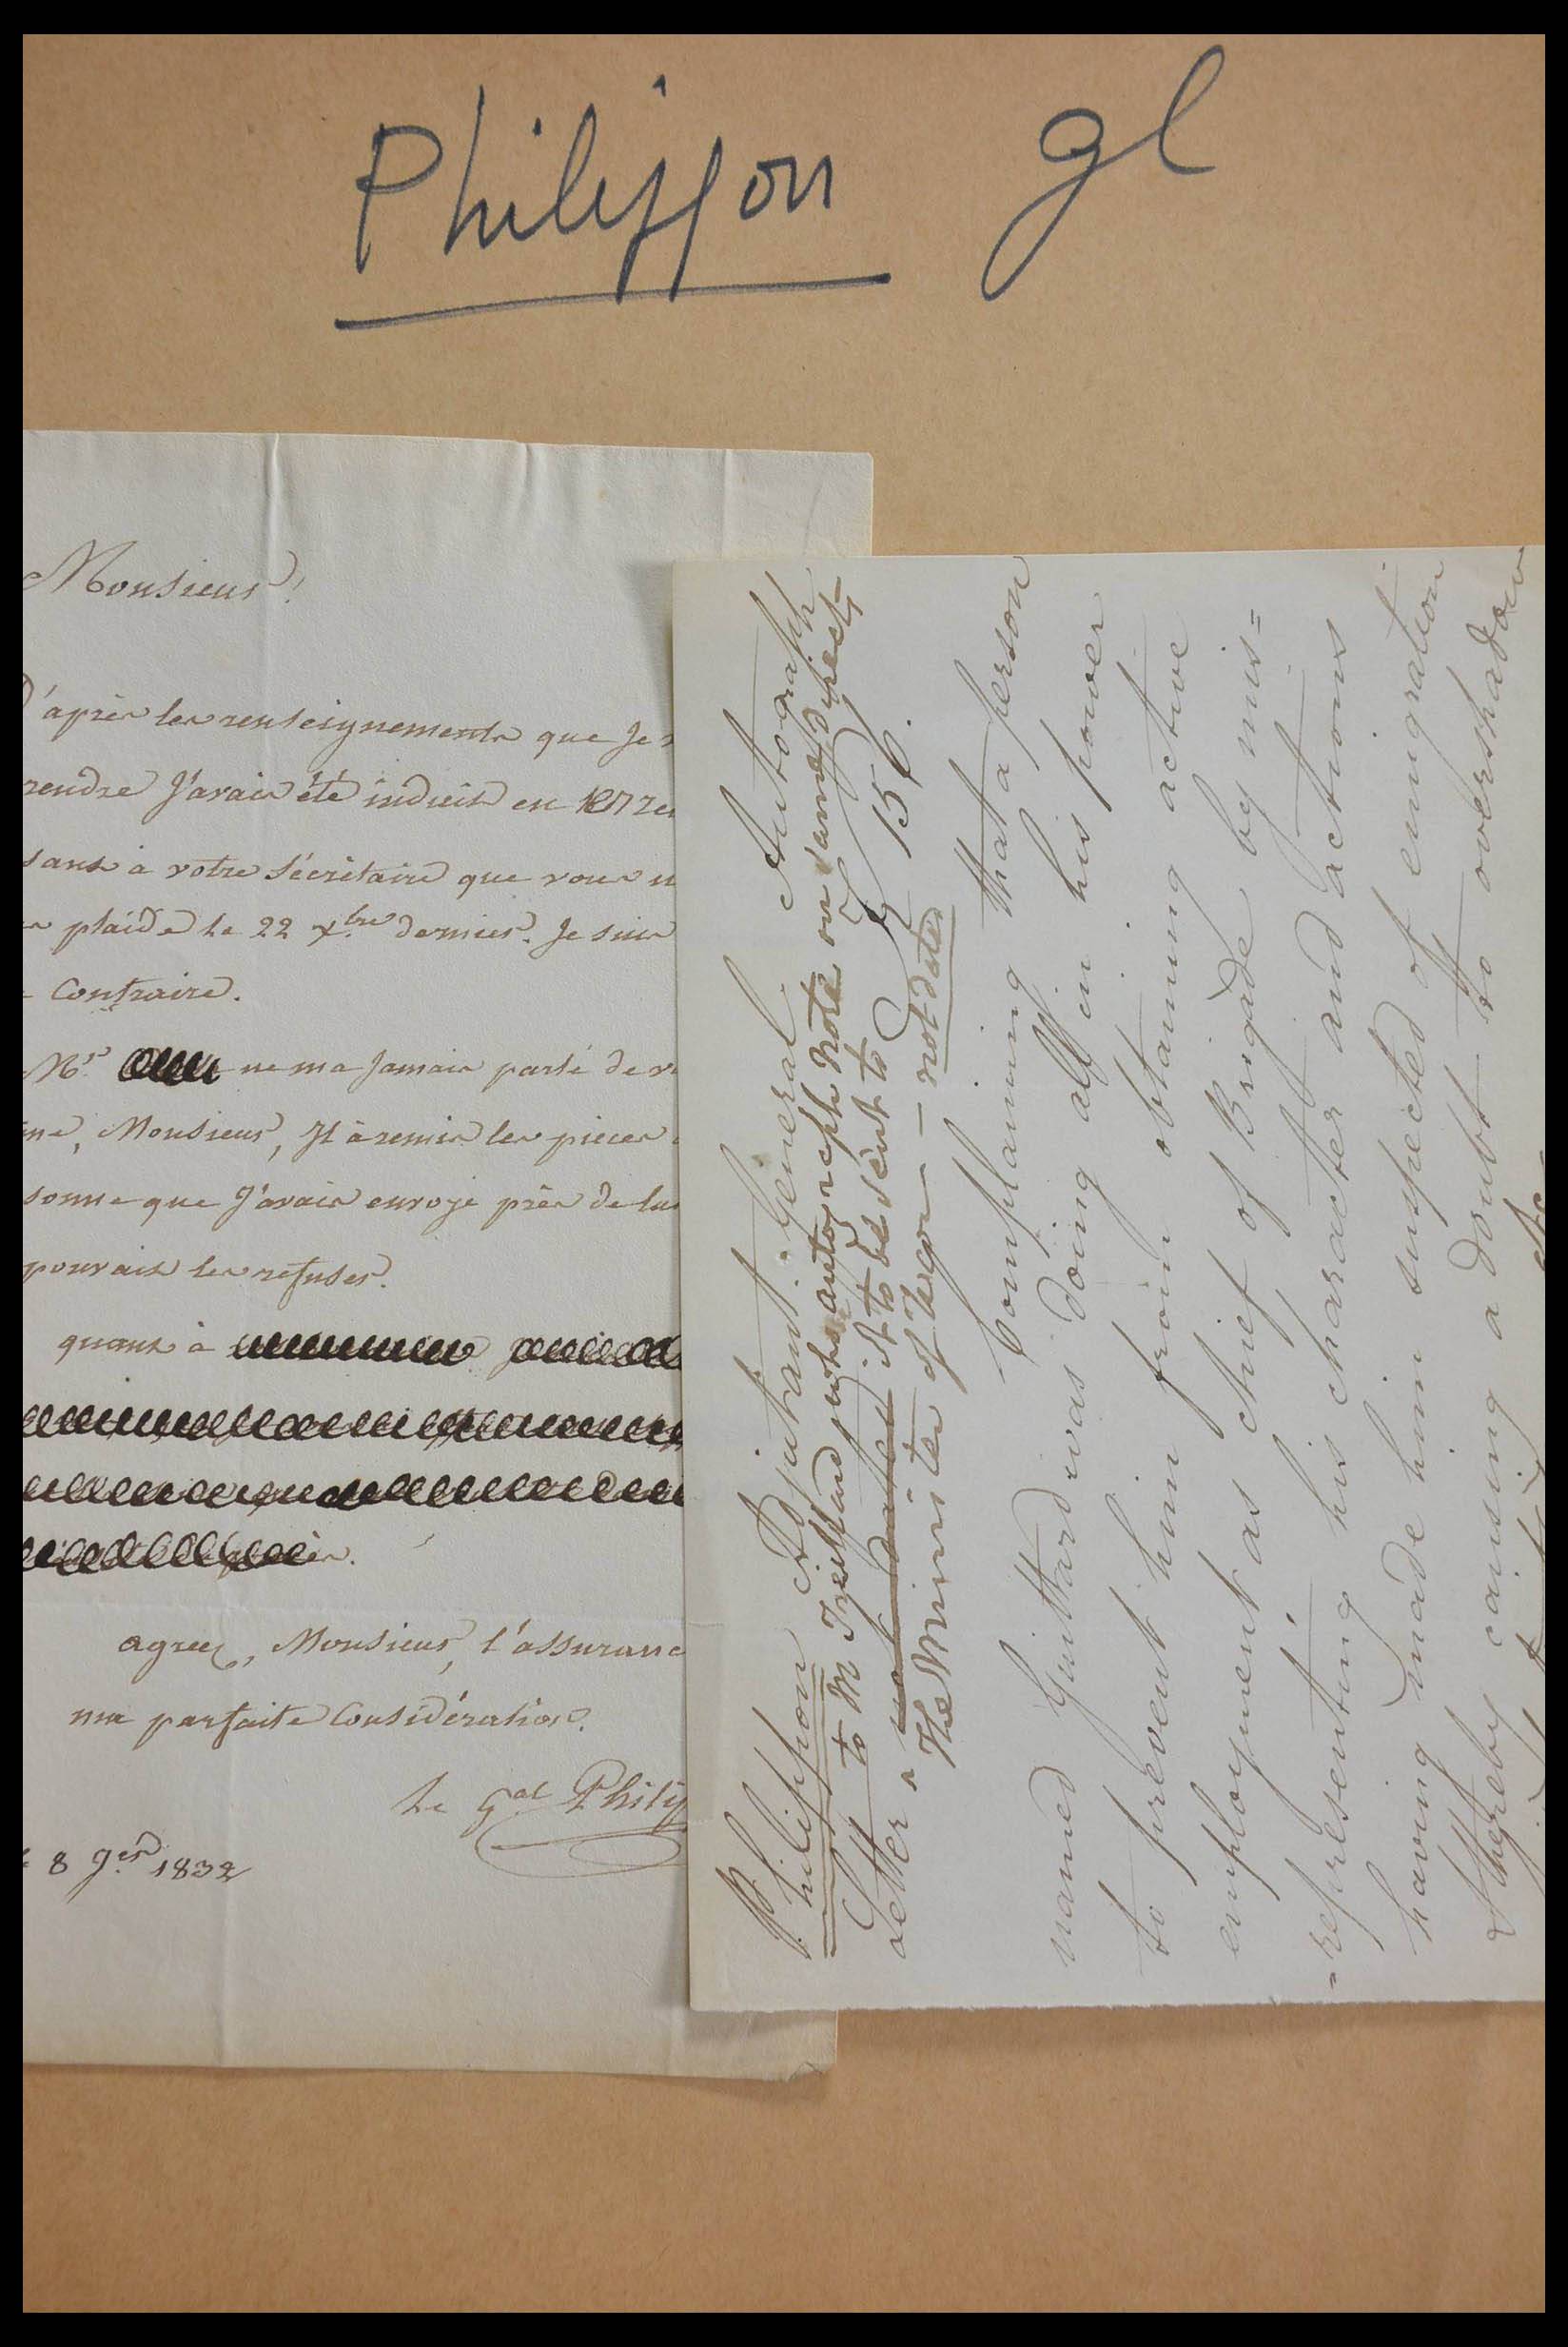 Philippon gl
Monsieur!
D'après les renseignements que Je
rendre J'avais été induit en
sant à votre Sécrétaire que vous
plaidé le 22 xbre dernier. Je suis
Contraire.
Mr ne ma Jamais parlé de
me, Monsieur, Il à remis les pieces
sonne que J'avais envoyé près de lui
pouvait les refuser.
quant à
agréez, Monsieur, l'assuranc
ma parfaite Considération.
Le Gal Philip
8 9er 1832
Philippon Adjutant. General. Autograph
to M Treilhard with autograph Note on same subject
Letter not dated it to be sent to 156.
The Minister of War — not dated
Complaining that a person
named Guittard was doing all in his power
to prevent him from obtaining active
employment as chief of Brigade by mis=
=representing his character and actions
having made him suspected of emigration
& thereby causing a doubt to overshadow